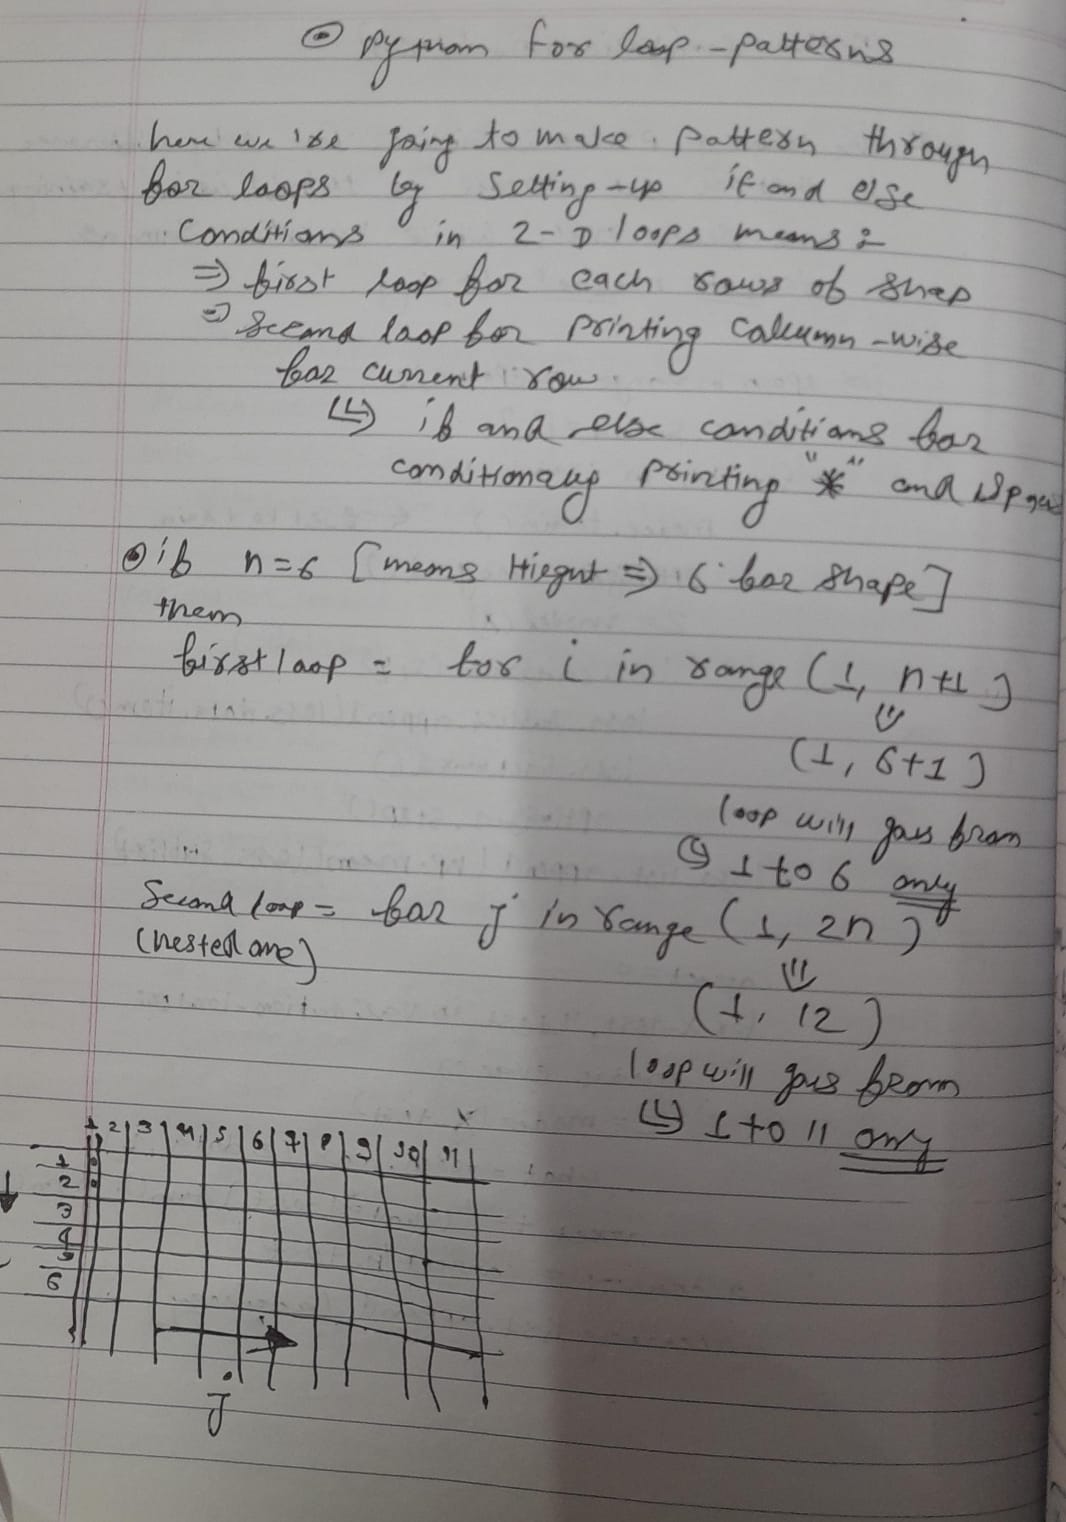 ⊙ Python for loop - patterns
here we're going to make pattern through
for loops by setting-up if and else
conditions in 2-D loops means :-
⇒ first loop for each rows of shap
⇒ Second loop for printing column-wise
for current row.
↳ if and else conditions for
conditionally printing "*" and
⊙ if n=6 [means Hieght ⇒ 6 for shape]
then
first loop = for i in range (1, n+1)
⇓
(1, 6+1)
loop will goes from
↳ 1 to 6 only
Second loop = for j in range (1, 2n)
(nested one)
⇓
(1, 12)
loop will goes from
↳ 1 to 11 only
1 2 3 4 5 6 7 8 9 10 11
1
2
3
4
5
6
j